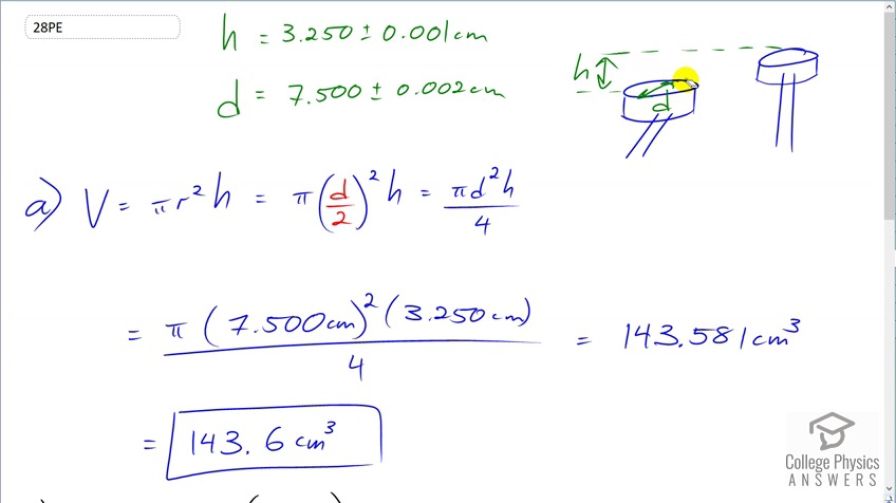 28PE
h = 3.250 ± 0.001 cm
d = 7.500 ± 0.002 cm
h
d
a) V = πr²h = π(d/2)²h = πd²h/4
= π(7.500cm)²(3.250cm)/4 = 143.581cm³
= 143.6 cm³
College Physics
ANSWERS